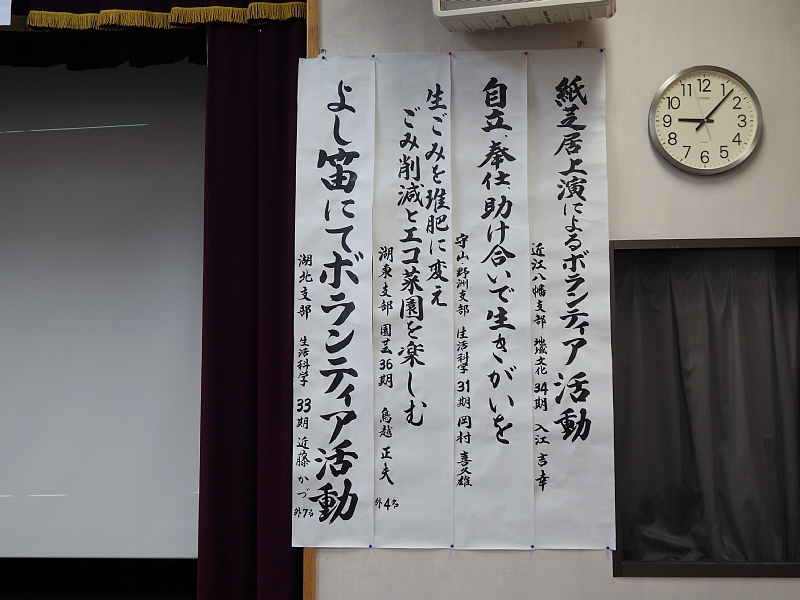 紙芝居上演によるボランティア活動
近江八幡支部 地域文化 34期 入江 吉幸
自立 奉仕 助け合いで生きがいを
守山・野洲支部 生活科学 31期 岡村 喜久雄
生ごみを堆肥に変え
ごみ削減とエコ菜園を楽しむ
湖東支部 園芸 36期 鳥越 正夫 外4名
よし笛にてボランティア活動
湖北支部 生活科学 33期 近藤 かづ 外7名
12
1
2
3
4
5
6
7
8
9
10
11
CITIZEN